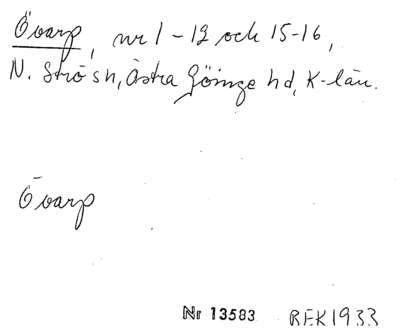 Övarp, nr 1-12 och 15-16,
N. Strö sn, Östra Göinge hd, K-län.
Övarp
Nr 13583 REK1933